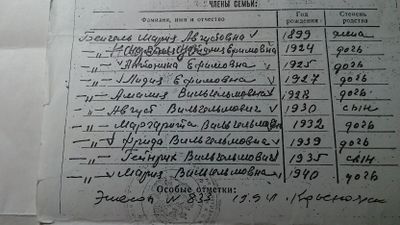 ЧЛЕНЫ СЕМЬИ:
Фамилия, имя и отчество Год рождения Степень родства
Мария Августовна √ 1899 жена
-„- Ефимовна 1924 дочь
-„- √ Антонина Ефимовна √ 1925 дочь
-„- √ Лидия Ефимовна √ 1927 дочь
-„- Амалия Вильгельмовна √ 1928 дочь
-„- Август Вильгельмович √ 1930 сын
-„- Маргарита Вильгельмовна √ 1932 дочь
-„- √ Фрида Вильгельмовна √ 1939 дочь
-„- Гейнрих Вильгельмович √ 1935 сын
-„- √ Мария Вильгельмовна √ 1940 дочь
Особые отметки:
Эшелон N 833